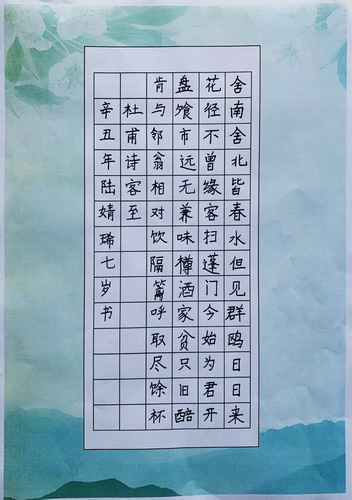 舍南舍北皆春水但见群鸥日日来
花径不曾缘客扫蓬门今始为君开
盘飧市远无兼味樽酒家贫只旧醅
肯与邻翁相对饮隔篱呼取尽馀杯
杜甫诗客至
辛丑年陆婧琋七岁书